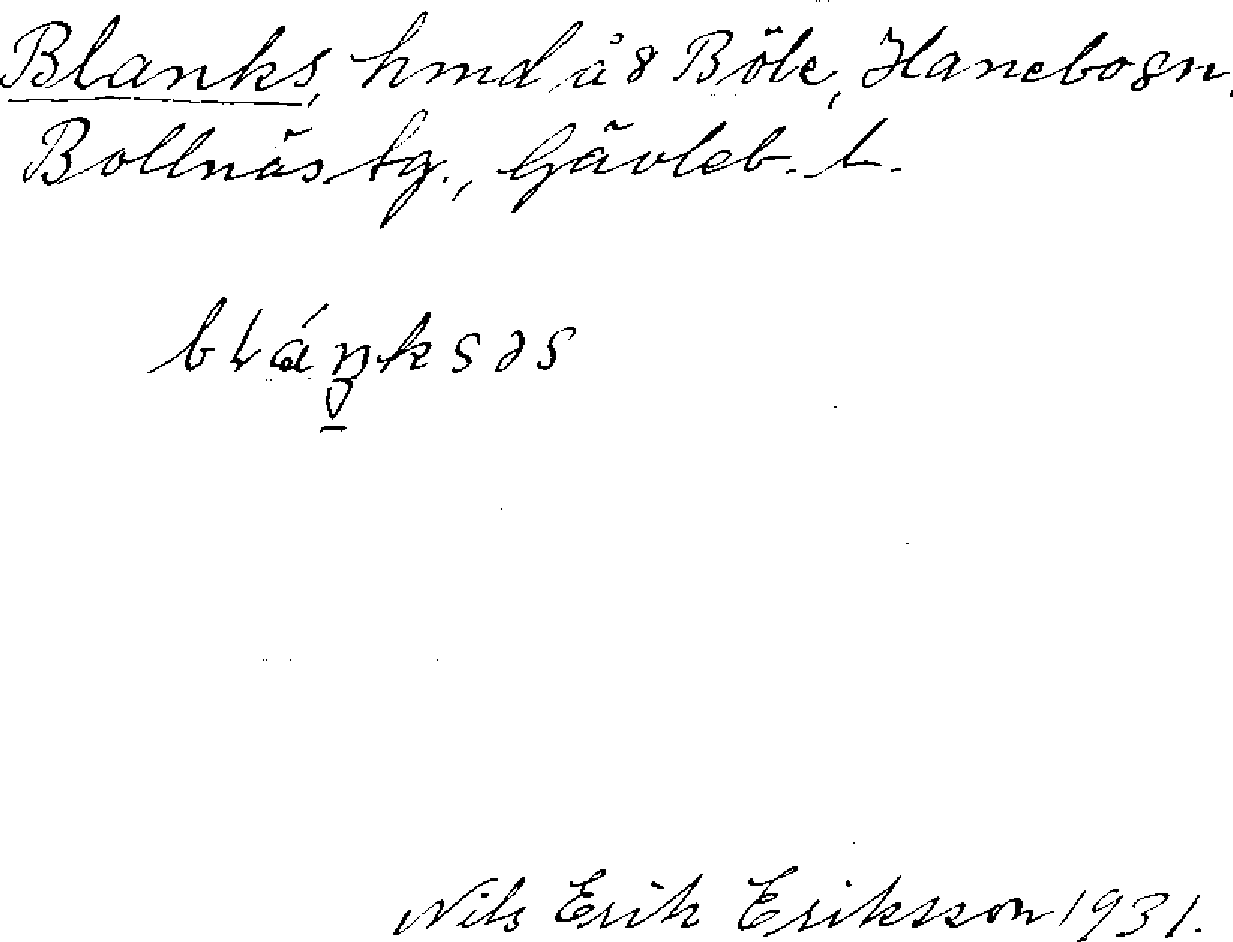 Blanks, hmd å 8 Böle, Hanebo sn.
Bollnäs tg., Gävleb. l.
bláŋksəs
Nils Erik Eriksson 1931.